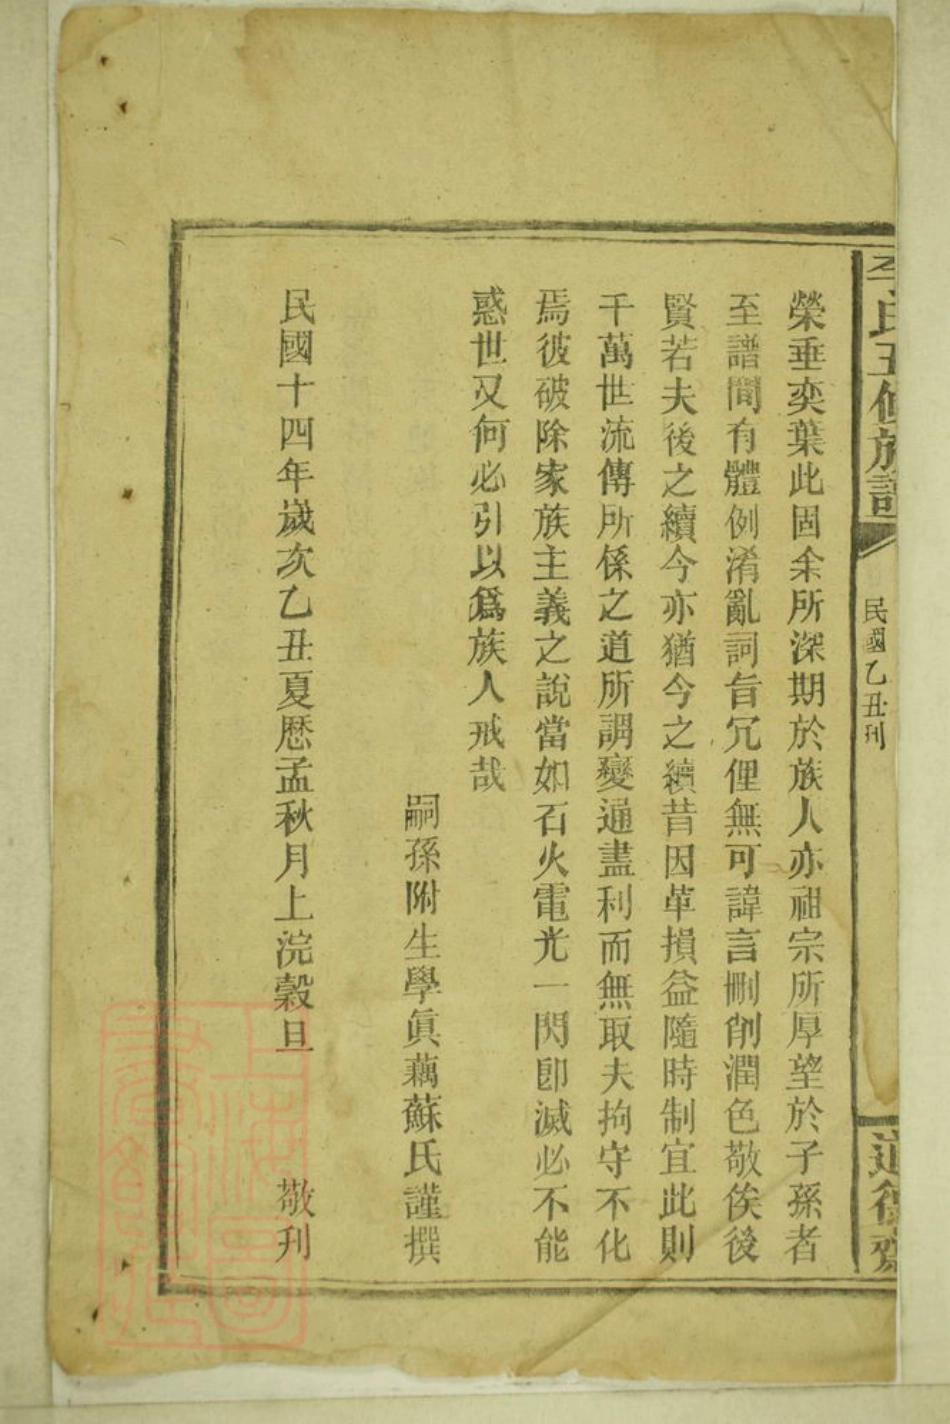 李氏五修族譜
民國乙丑刊
道徳齋
榮垂奕葉此固余所深期於族人亦祖宗所厚望於子孫者
至譜間有體例淆亂詞旨冗俚無可諱言刪削潤色敬俟後
賢若夫後之續今亦猶今之續昔因革損益隨時制宜此則
千萬世流傳所係之道所謂變通盡利而無取夫拘守不化
焉彼破除家族主義之說當如石火電光一閃卽滅必不能
惑世又何必引以爲族人戒哉
嗣孫附生學眞藕蘇氏謹撰
民國十四年歲次乙丑夏歷孟秋月上浣穀旦 敬刋
上海圖書館藏